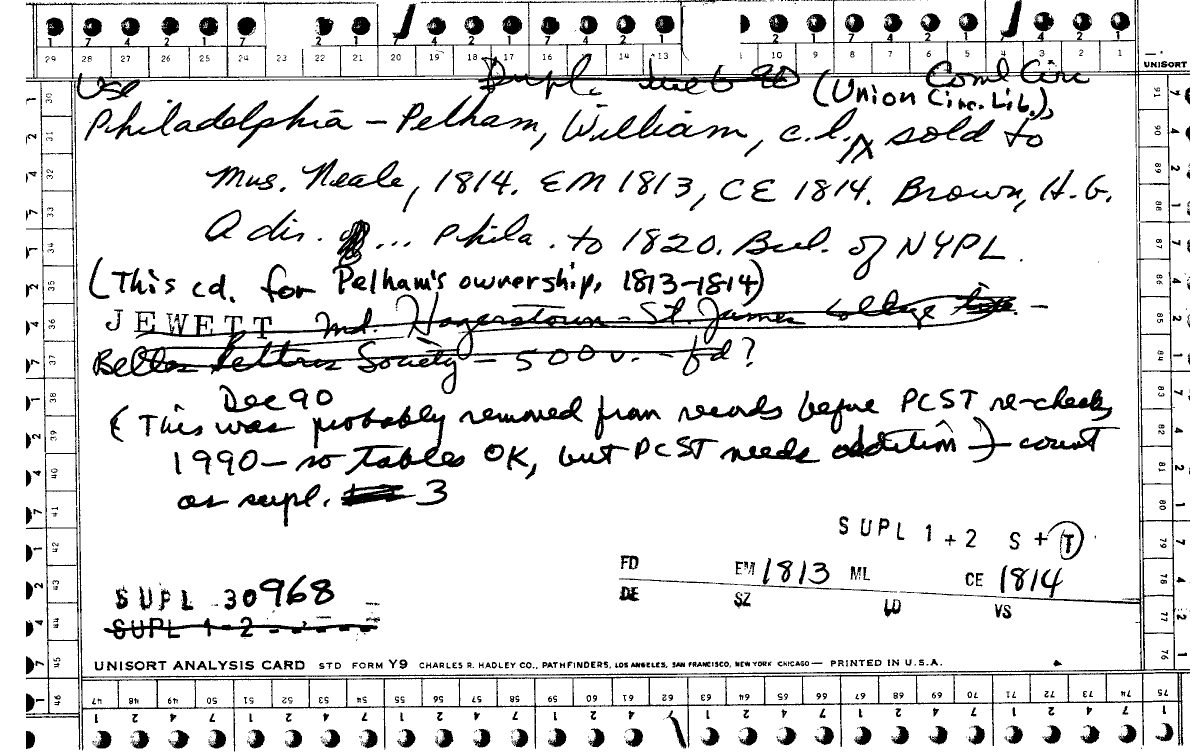 29 28 27 26 25 24 23 22 21 20 19 18 17 16 15 14 13 10 9 8 7 6 5 4 3 2 1
UNISORT
Use Dupl. Coml Circ
(Union Circ. Lib.),
Philadelphia – Pelham, William, c.l. ^ sold to
Mrs. Neale, 1814. EM 1813, CE 1814. Brown, H.G.
A dir. ... Phila. to 1820. Bul. of NYPL.
(This cd. for Pelham's ownership, 1813-1814)
JEWETT Md. Hagerstown – St. James College –
Belles Lettres Society – 500v. – fd?
Dec 90
(This was probably removed from records before PCST re-check,
1990 – so tables OK, but PCST needs addition) – count
as supl. 3
SUPL 1 + 2 S + T
FD EM 1813 ML CE 1814
DE SZ LD VS
SUPL 30968
SUPL 1-2
UNISORT ANALYSIS CARD STD FORM Y9 CHARLES R. HADLEY CO., PATHFINDERS, LOS ANGELES, SAN FRANCISCO, NEW YORK CHICAGO — PRINTED IN U.S.A.
47 48 49 50 51 52 53 54 55 56 57 58 59 60 61 62 63 64 65 66 67 68 69 70 71 72 73 74 75